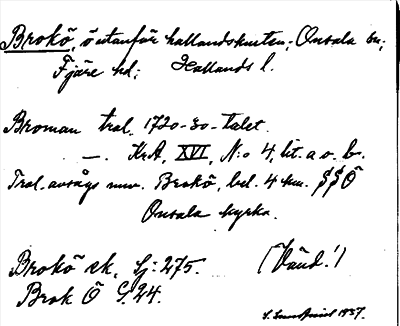 Brokö, ö utanför hallandskusten; Onsala sn;
Fjäre hd; Hallands l.
Broman tral. 1720-30-talet.
—. KrA, XVI, N:o 4, lit. a o. b.
Tral. avsågs nuv. Brokö, bel. 4 km. SSÖ
Onsala kyrka.
Brokö ek. Sj: 275. (Vänd!)
Brok Ö G.24.
1937.